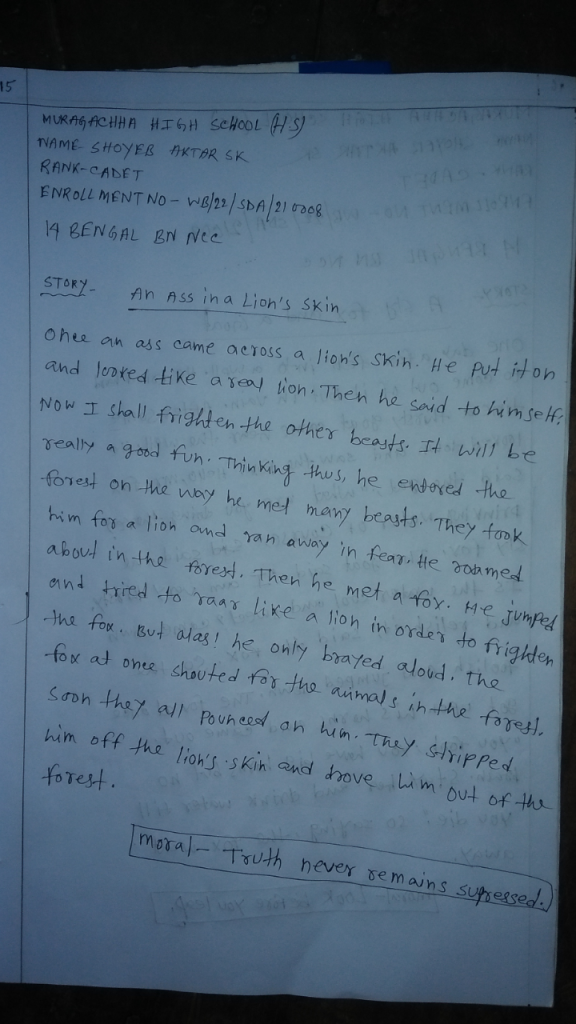 15
MURAGACHHA HIGH SCHOOL (HS)
NAME- SHOYEB AKTAR SK
RANK-CADET
ENROLLMENT NO - WB/22/SDA/210008
14 BENGAL BN NCC
STORY- An Ass in a Lion's Skin
Once an ass came across a lion's skin. He put it on
and looked like a real lion. Then he said to himself;
NOW I shall frighten the other beasts. It will be
really a good fun. Thinking thus, he entered the
forest on the way he met many beasts. They took
him for a lion and ran away in fear. He roamed
about in the forest. Then he met a fox. He jumped
and tried to roar like a lion in order to frighten
the fox. But alas! he only brayed aloud. The
fox at once shouted for the animals in the forest.
Soon they all pounced on him. They stripped
him off the lion's skin and drove him out of the
forest.
Moral- Truth never remains supressed.